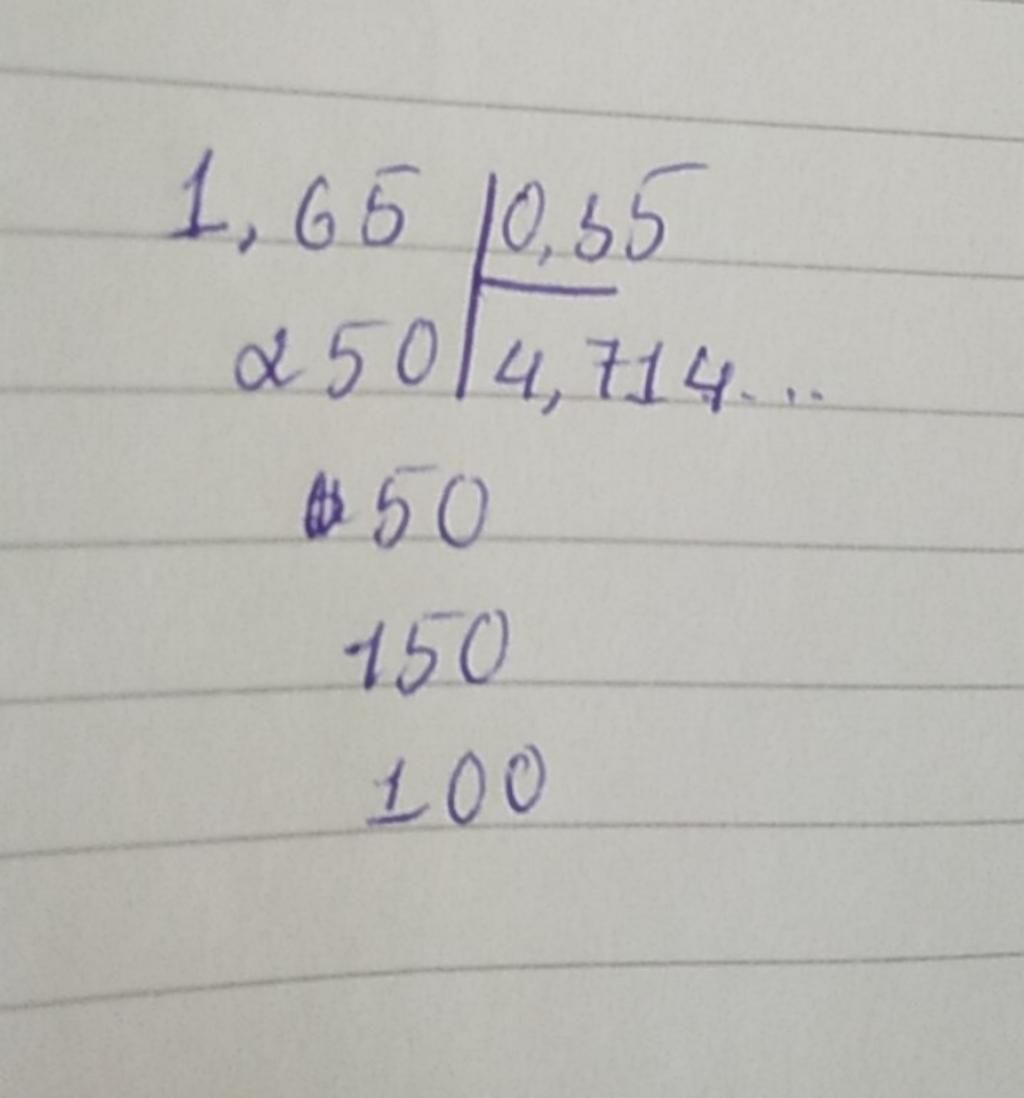 1,65 | 0,35
250 | 4,714...
50
150
100